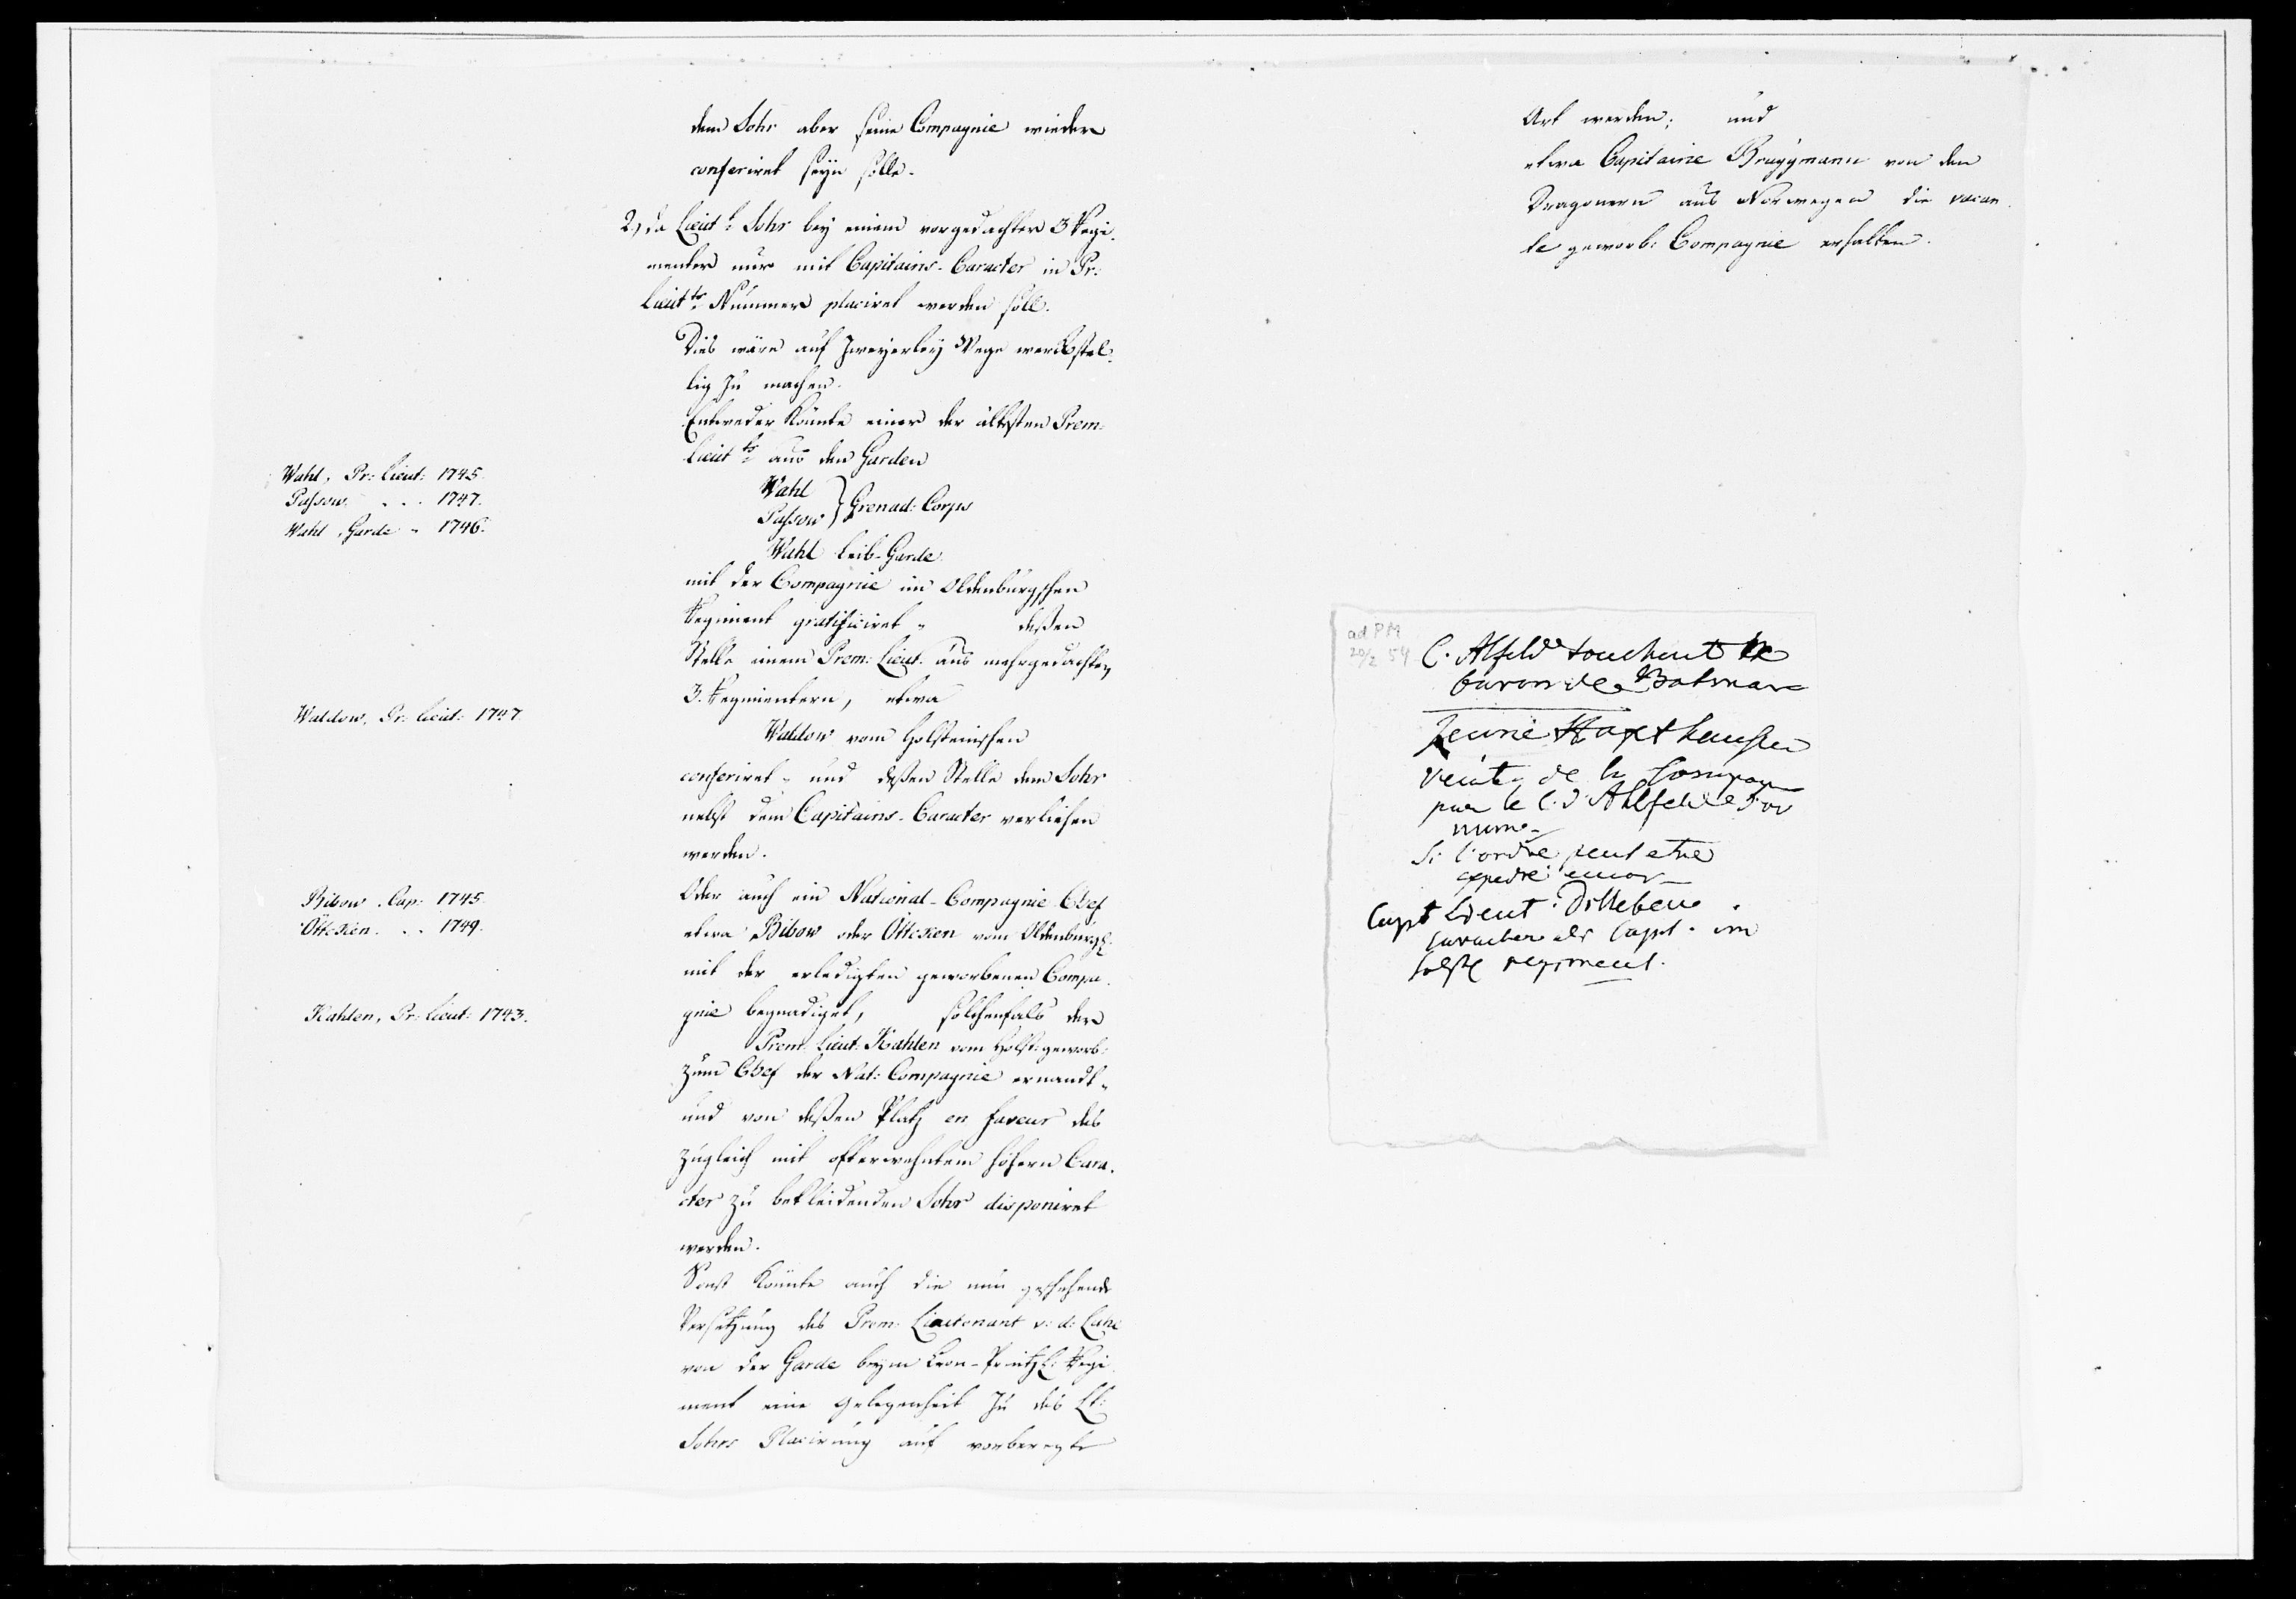 dem Sohr aber seine Compagnie wieder
conferiret seyn solle.
2.) da Lieut: Sohr bey einem vorgedachter 3 Regi-
menter nur mit Capitains-Caracter in Pr:
Lieut:ts Nummer placiret werden soll.
Dies wäre auf zweyerley Wege werckstel-
lig zu machen.
Entweder könnte einer der ältesten Prem:
Lieut:ts aus den Garden
Wahl, Pr: Lieut: 1745.
Passow. . . . 1747.
Wahl, Garde - 1746.
Wahl
Passow } Grenad: Corps
Wahl Leib-Garde
mit der Compagnie im Oldenburgschen
Regiment gratificiret - deßen
Stelle einem Prem: Lieut. aus mehrgedachten
3. Regimentern, etwa
Waldow, Pr: Lieut: 1747.
Waldow vom Holsteinischen
conferiret - und deßen Stelle dem Sohr
nebst dem Capitains-Caracter verliehen
werden.
Bibow. Cap: 1745.
Ötteken. . . 1749.
Oder auch ein National-Compagnie-Chef
etwa Bibow oder Ötteken vom Oldenburg:
mit der erledigten geworbenen Compa-
gnie begnadiget, solchenfals der
Kahlen, Pr: Lieut: 1743.
Prem: Lieut: Kahlen vom Holst: geworb:
zum Chef der Nat: Compagnie ernandt -
und von deßen Platz en faveur des
zugleich mit ofterwehntem höhern Cara-
cter zu bekleidenden Sohr disponiret
werden.
Sonst könnte auch die nun geschehende
Versetzung des Prem: Lieutenant v: d: Lühe
von der Garde beym Cron-Printzl: Regi-
ment eine Gelegenheit zu des Lt:
Sohrs Placirung auf vorberegte
Art werden; und
etwa Capitaine Bruggmann von den
Dragonern aus Norwegen die vacan-
te geworb: Compagnie erhalten.
ad PM
20/2 54
C. Alfeld touchent le
baron de
Jeune Haxthausen
de la Compag
par le C. d'Ahlfeld
Si l'ordre peut etre
Capt Lieut.
Caracter als Capt. im
Holst regiment.